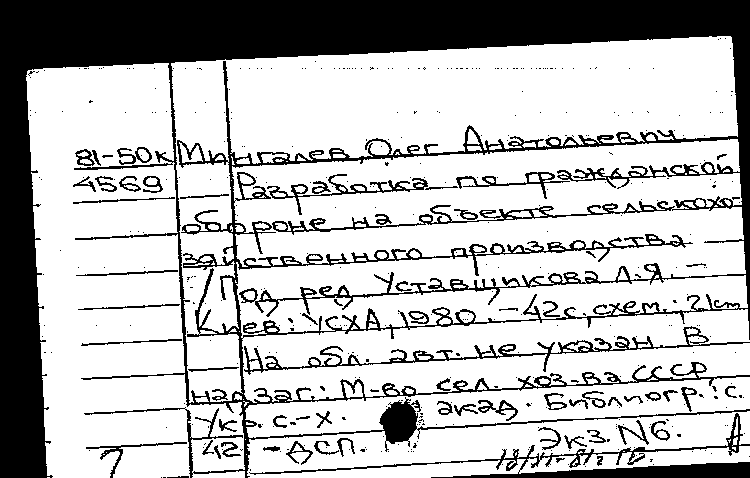 81-50к Мингалев, Олег Анатольевич.
4569 Разработка по гражданской
обороне на объекте сельскохо-
зяйственного производства
/ Под ред Уставщикова Л.Я. –
Киев: УСХА, 1980. – 42с, схем.; 21cm
На обл. авт. не указан. В
надзаг.: М-во сел. хоз-ва СССР
Укр. с.-х. акад. Библиогр.: с.
42 – ДСП. Экз. N6. А